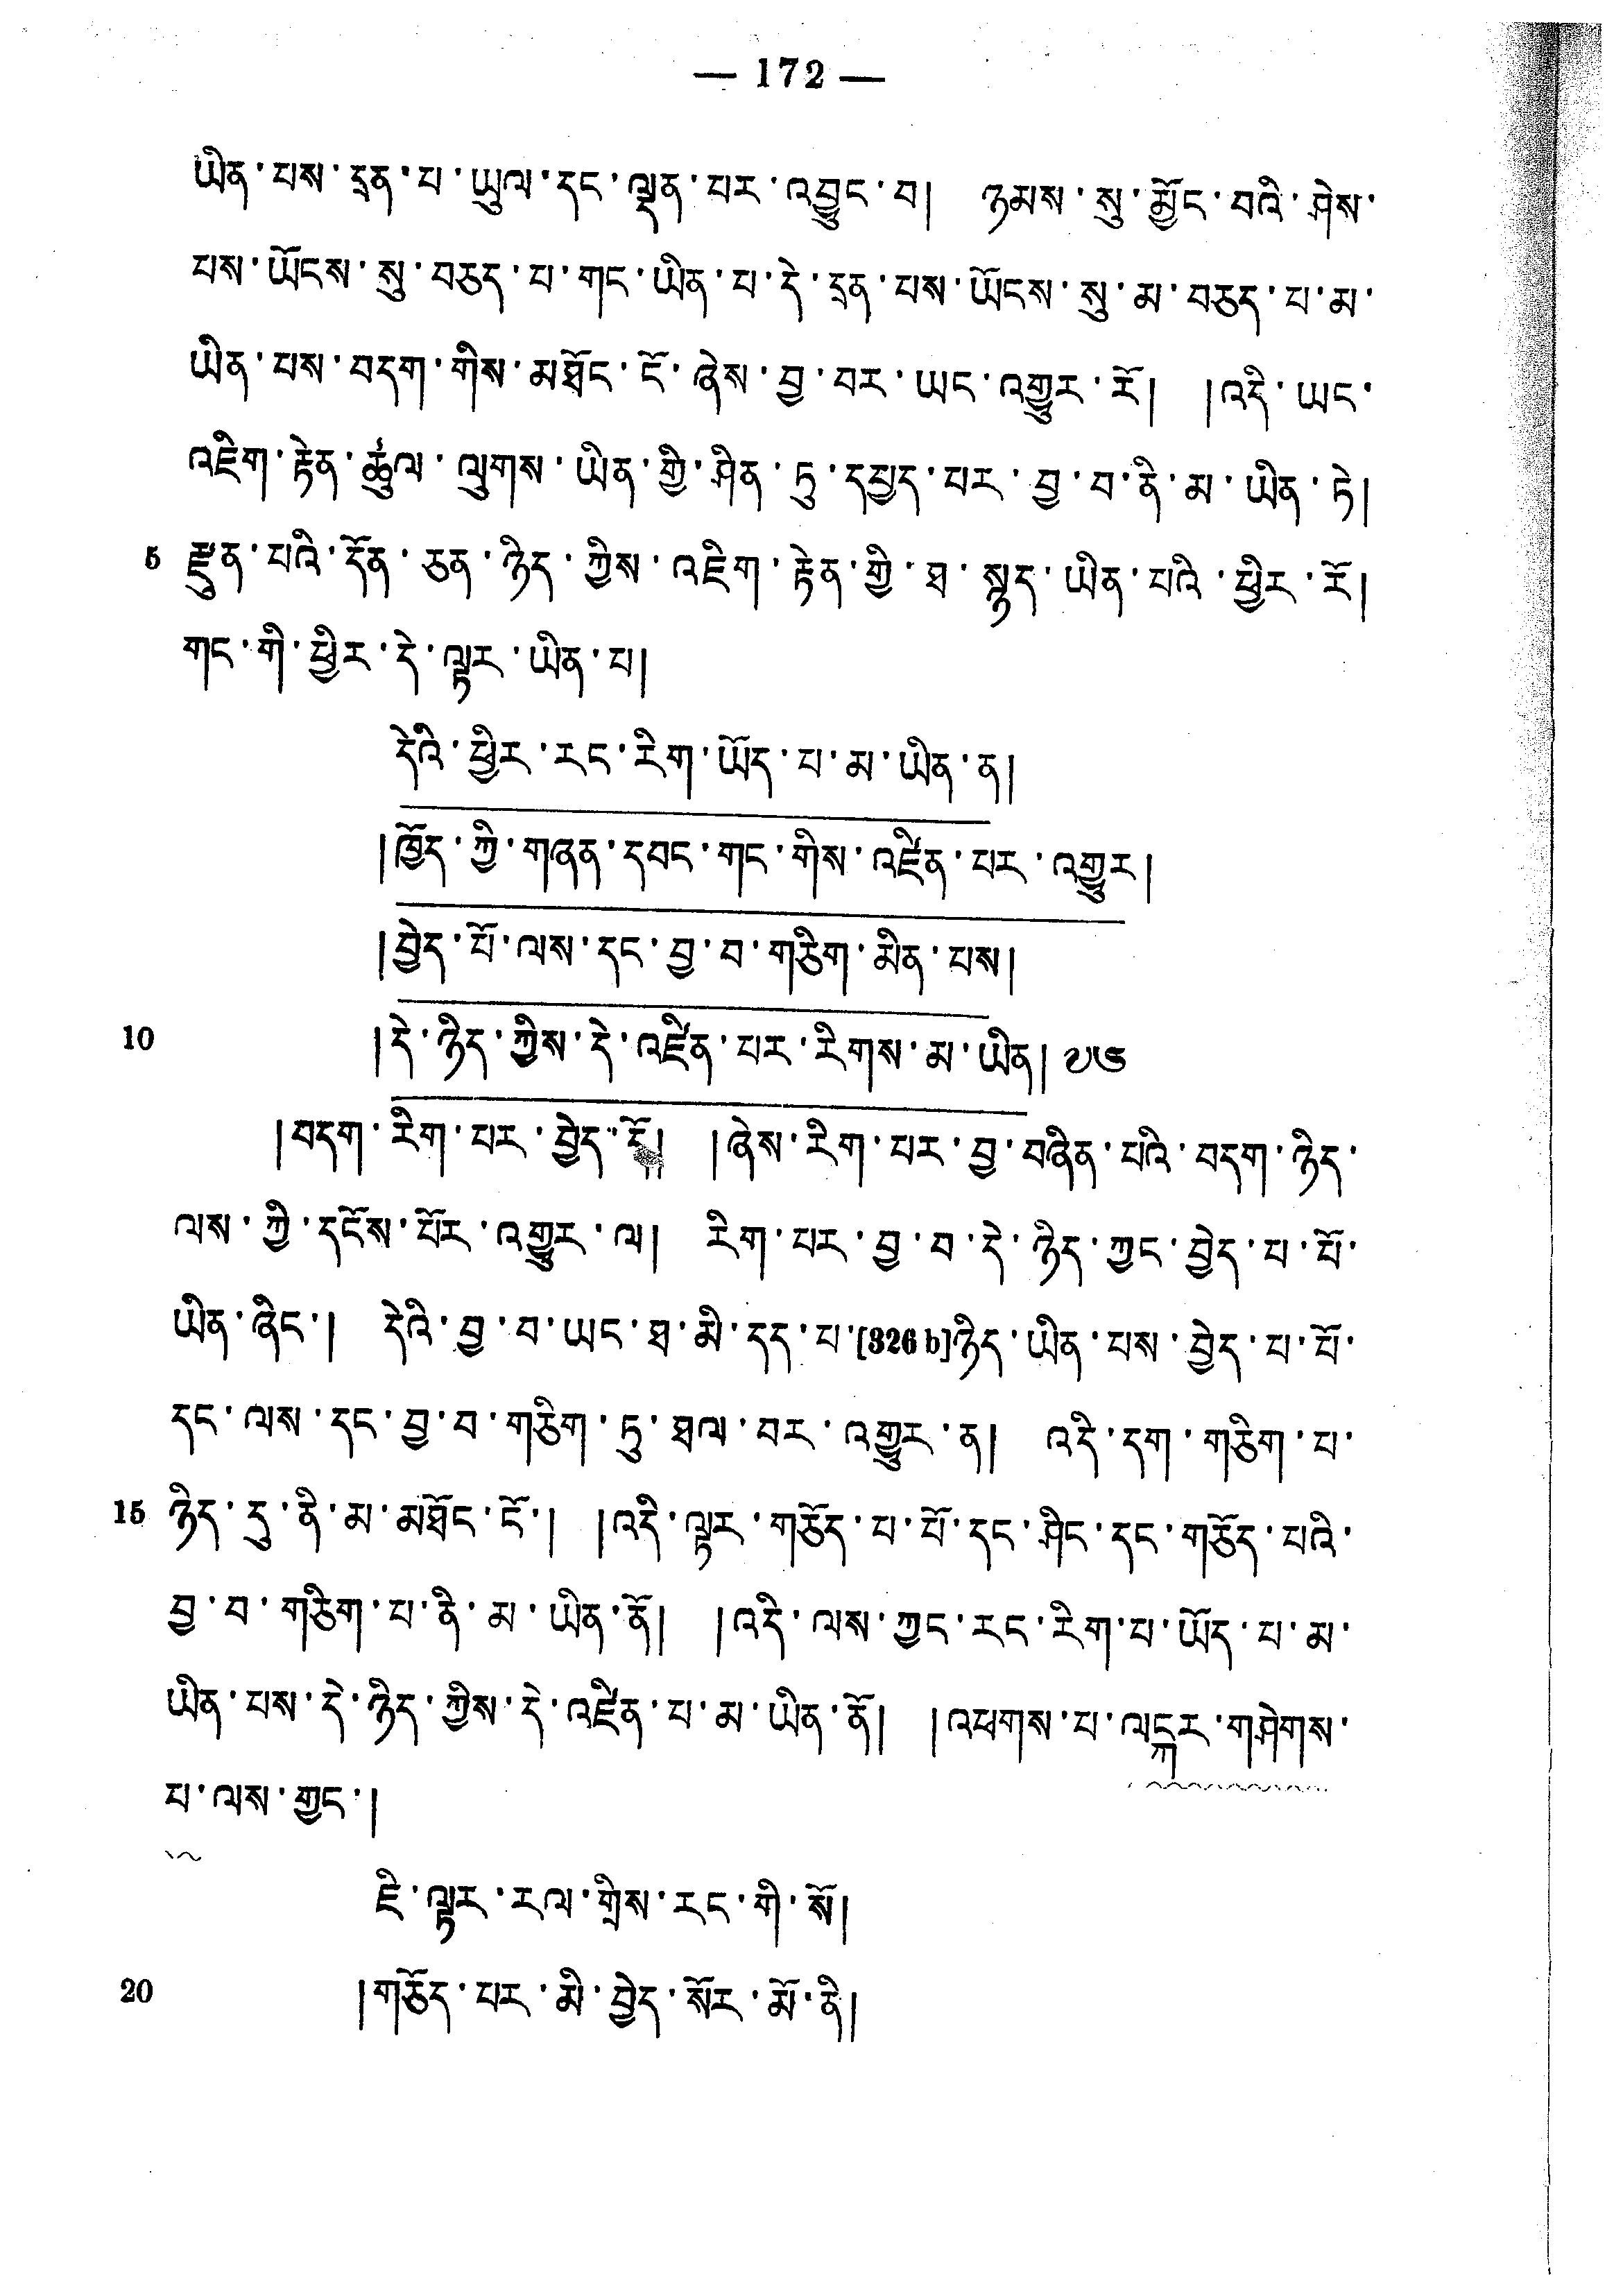 — 172 —
ཡིན་པས་དྲན་པ་ཡུལ་དང་ལྡན་པར་འབྱུང་བ། ཉམས་སུ་མྱོང་བའི་ཤེས་
པས་ཡོངས་སུ་བཅད་པ་གང་ཡིན་པ་དེ་དྲན་པས་ཡོངས་སུ་མ་བཅད་པ་མ་
ཡིན་པས་བདག་གིས་མཐོང་ངོ་ཞེས་བྱ་བར་ཡང་འགྱུར་རོ། །འདི་ཡང་
འཇིག་རྟེན་ཚུལ་ལུགས་ཡིན་གྱི་ཤིན་ཏུ་དཔྱད་པར་བྱ་བ་ནི་མ་ཡིན་ཏེ།
5 རྫུན་པའི་དོན་ཅན་ཉིད་ཀྱིས་འཇིག་རྟེན་གྱི་ཐ་སྙད་ཡིན་པའི་ཕྱིར་རོ།
གང་གི་ཕྱིར་དེ་ལྟར་ཡིན་པ།
དེའི་ཕྱིར་རང་རིག་ཡོད་པ་མ་ཡིན་ན།
།ཁྱོད་ཀྱི་གཞན་དབང་གང་གིས་འཛིན་པར་འགྱུར།
།བྱེད་པོ་ལས་དང་བྱ་བ་གཅིག་མིན་པས།
10 །དེ་ཉིད་ཀྱིས་དེ་འཛིན་པར་རིགས་མ་ཡིན། ༧༦
།བདག་རིག་པར་བྱེད་དོ། །ཞེས་རིག་པར་བྱ་བཞིན་པའི་བདག་ཉིད་
ལས་ཀྱི་དངོས་པོར་འགྱུར་ལ། རིག་པར་བྱ་བ་དེ་ཉིད་ཀྱང་བྱེད་པ་པོ་
ཡིན་ཞིང་། དེའི་བྱ་བ་ཡང་ཐ་མི་དད་པ་[326 b]ཉིད་ཡིན་པས་བྱེད་པ་པོ་
དང་ལས་དང་བྱ་བ་གཅིག་ཏུ་ཐལ་བར་འགྱུར་ན། འདི་དག་གཅིག་པ་
15 ཉིད་དུ་ནི་མ་མཐོང་ངོ་། །འདི་ལྟར་གཅོད་པ་པོ་དང་ཤིང་དང་གཅོད་པའི་
བྱ་བ་གཅིག་པ་ནི་མ་ཡིན་ནོ། །འདི་ལས་ཀྱང་རང་རིག་པ་ཡོད་པ་མ་
ཡིན་པས་དེ་ཉིད་ཀྱིས་དེ་འཛིན་པ་མ་ཡིན་ནོ། །འཕགས་པ་ལངྐར་གཤེགས་
པ་ལས་གྱང་།
ཇི་ལྟར་རལ་གྲིས་རང་གི་སོ།
20 །གཅོད་པར་མི་བྱེད་སོར་མོ་ནི།